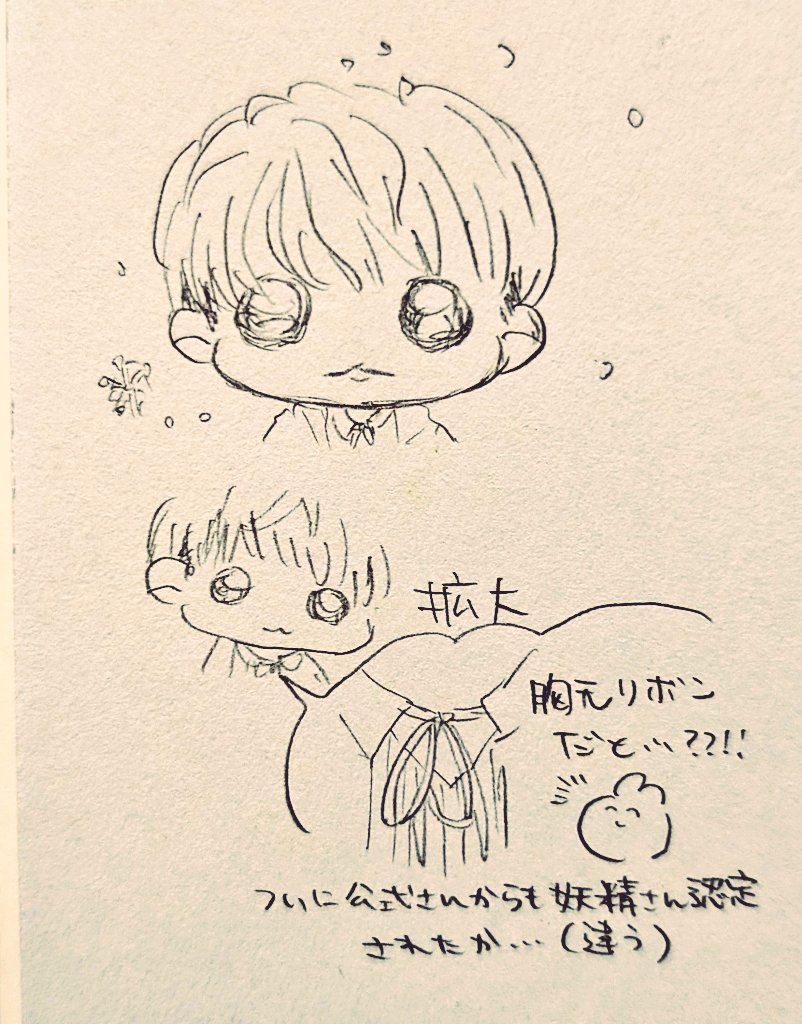 拡大
胸元リボン
だと…??!!
ついに公式さんからも妖精さん認定
されたか…(違う)